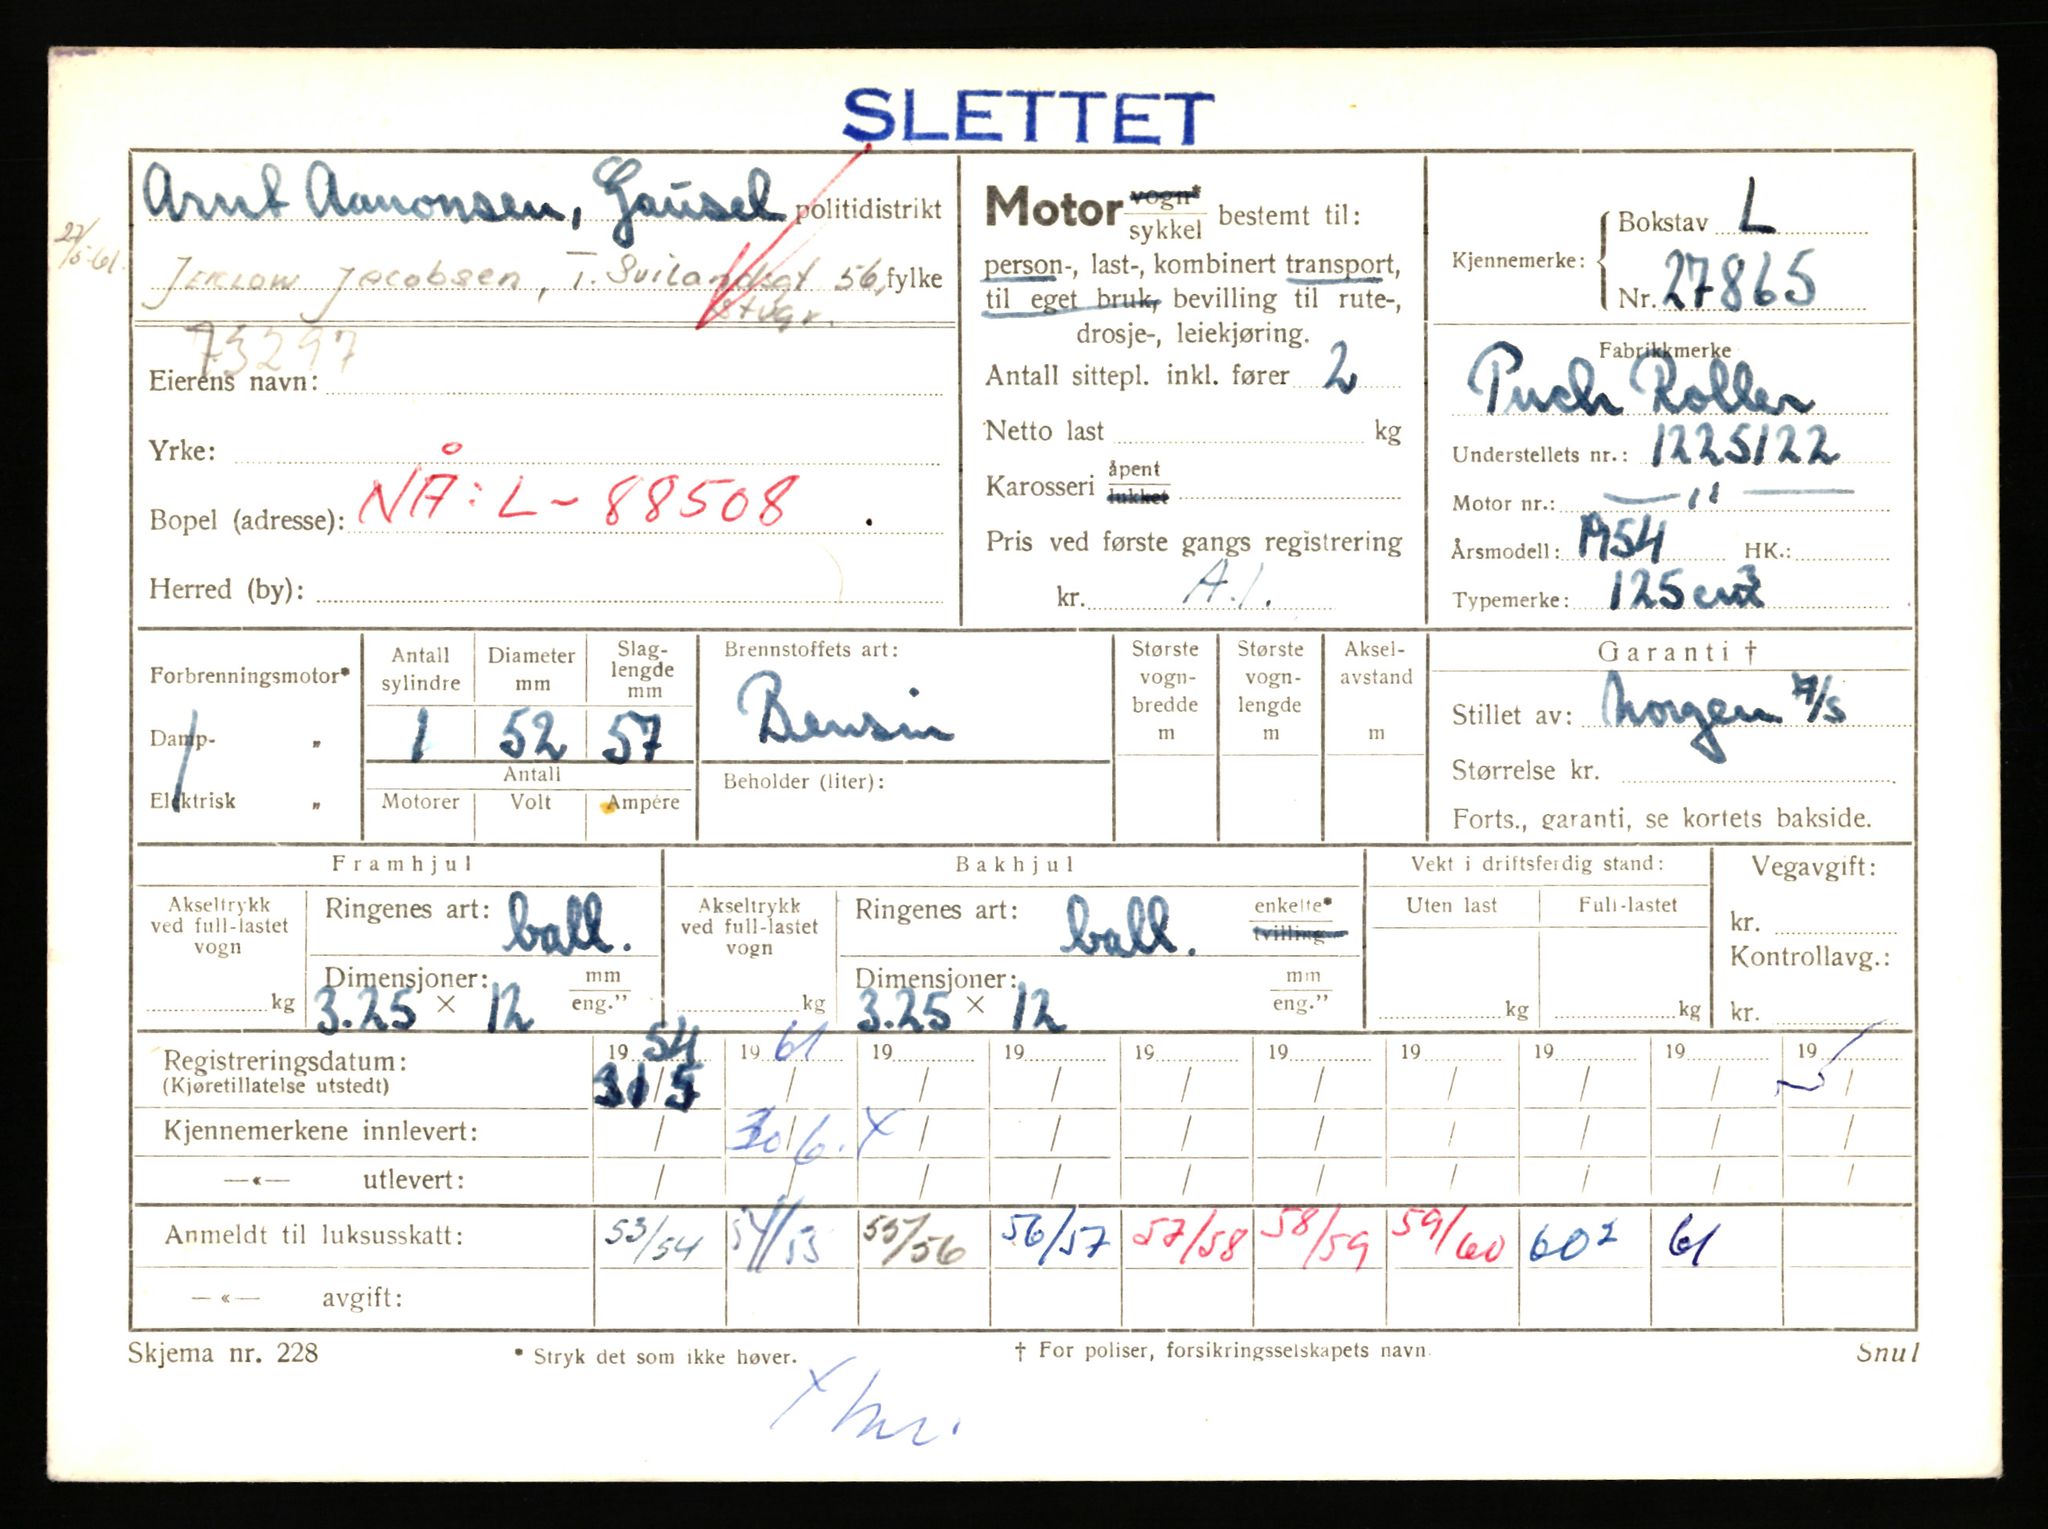 SLETTET
Arnt Aanonsen, Gausel politidistrikt
27/5-61.
Jacobsen, T. Svilandsgt 56, fylke
Stvgr.
73297
Eierens navn:
Yrke:
Bopel (adresse): NÅ: L-88508
Herred (by):
Motor vogn* sykkel bestemt til:
person-, last-, kombinert transport,
til eget bruk, bevilling til rute-,
drosje-, leiekjøring.
Antall sittepl. inkl. fører 2
Netto last kg
Karosseri åpent lukket
Pris ved første gangs registrering
kr. A.1.
Kjennemerke: Bokstav L
Nr. 27865
Fabrikkmerke
Puch Roller
Understellets nr.: 1225122
Motor nr.: — " —
Årsmodell: M54 HK.:
Typemerke: 125 cm3
Forbrenningsmotor*
Damp- "
Elektrisk "
Antall sylindre Diameter mm Slag-lengde mm
1 52 57
Antall
Motorer Volt Ampére
Brennstoffets art:
Bensin
Beholder (liter):
Største vogn-bredde m
Største vogn-lengde m
Aksel-avstand m
Garanti †
Stillet av: Norgen A/S
Størrelse kr.
Forts., garanti, se kortets bakside.
Framhjul
Akseltrykk ved full-lastet vogn
kg
Ringenes art: ball.
Dimensjoner: mm eng."
3.25 × 12
Bakhjul
Akseltrykk ved full-lastet vogn
kg
Ringenes art: ball. enkelte* tvilling
Dimensjoner: mm eng."
3.25 × 12
Vekt i driftsferdig stand:
Uten last Full-lastet
kg kg
Vegavgift:
kr.
Kontrollavg.:
kr.
Registreringsdatum: 19 54 19 61 19 19 19 19 19 19 19 19
(Kjøretillatelse utstedt) 31/5 / / / / / / / / /
Kjennemerkene innlevert: / 30/6. X / / / / / / / /
—«— utlevert: / / / / / / / / / /
Anmeldt til luksusskatt: 53/54 54/55 55/56 56/57 57/58 58/59 59/60 60² 61
—«— avgift:
Skjema nr. 228 * Stryk det som ikke høver. † For poliser, forsikringsselskapets navn. Snul
X